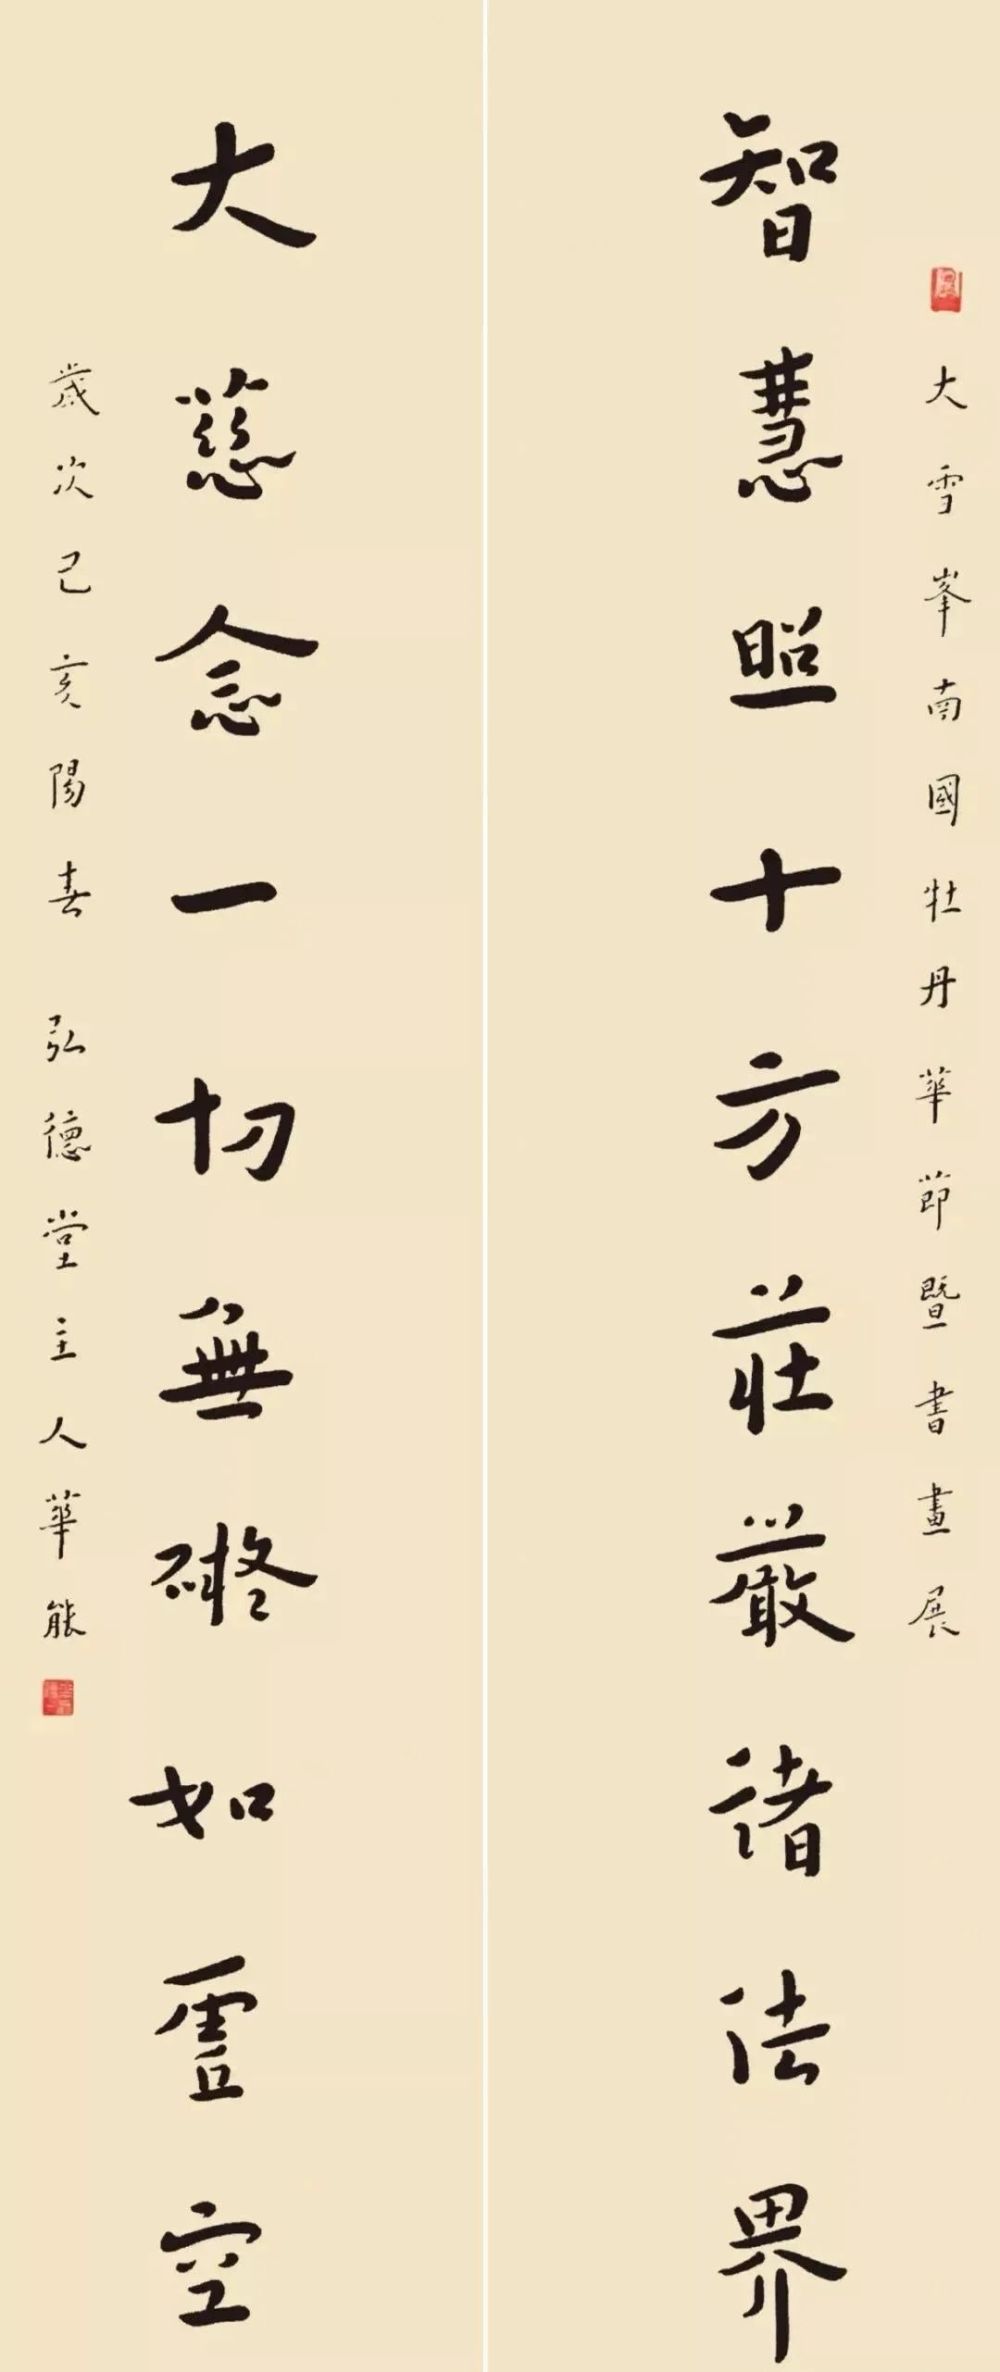 大雪峯南國牡丹華節暨書畫展
智慧照十方莊嚴諸法界
大慈念一切無礙如虛空
歲次己亥陽春 弘德堂主人華能